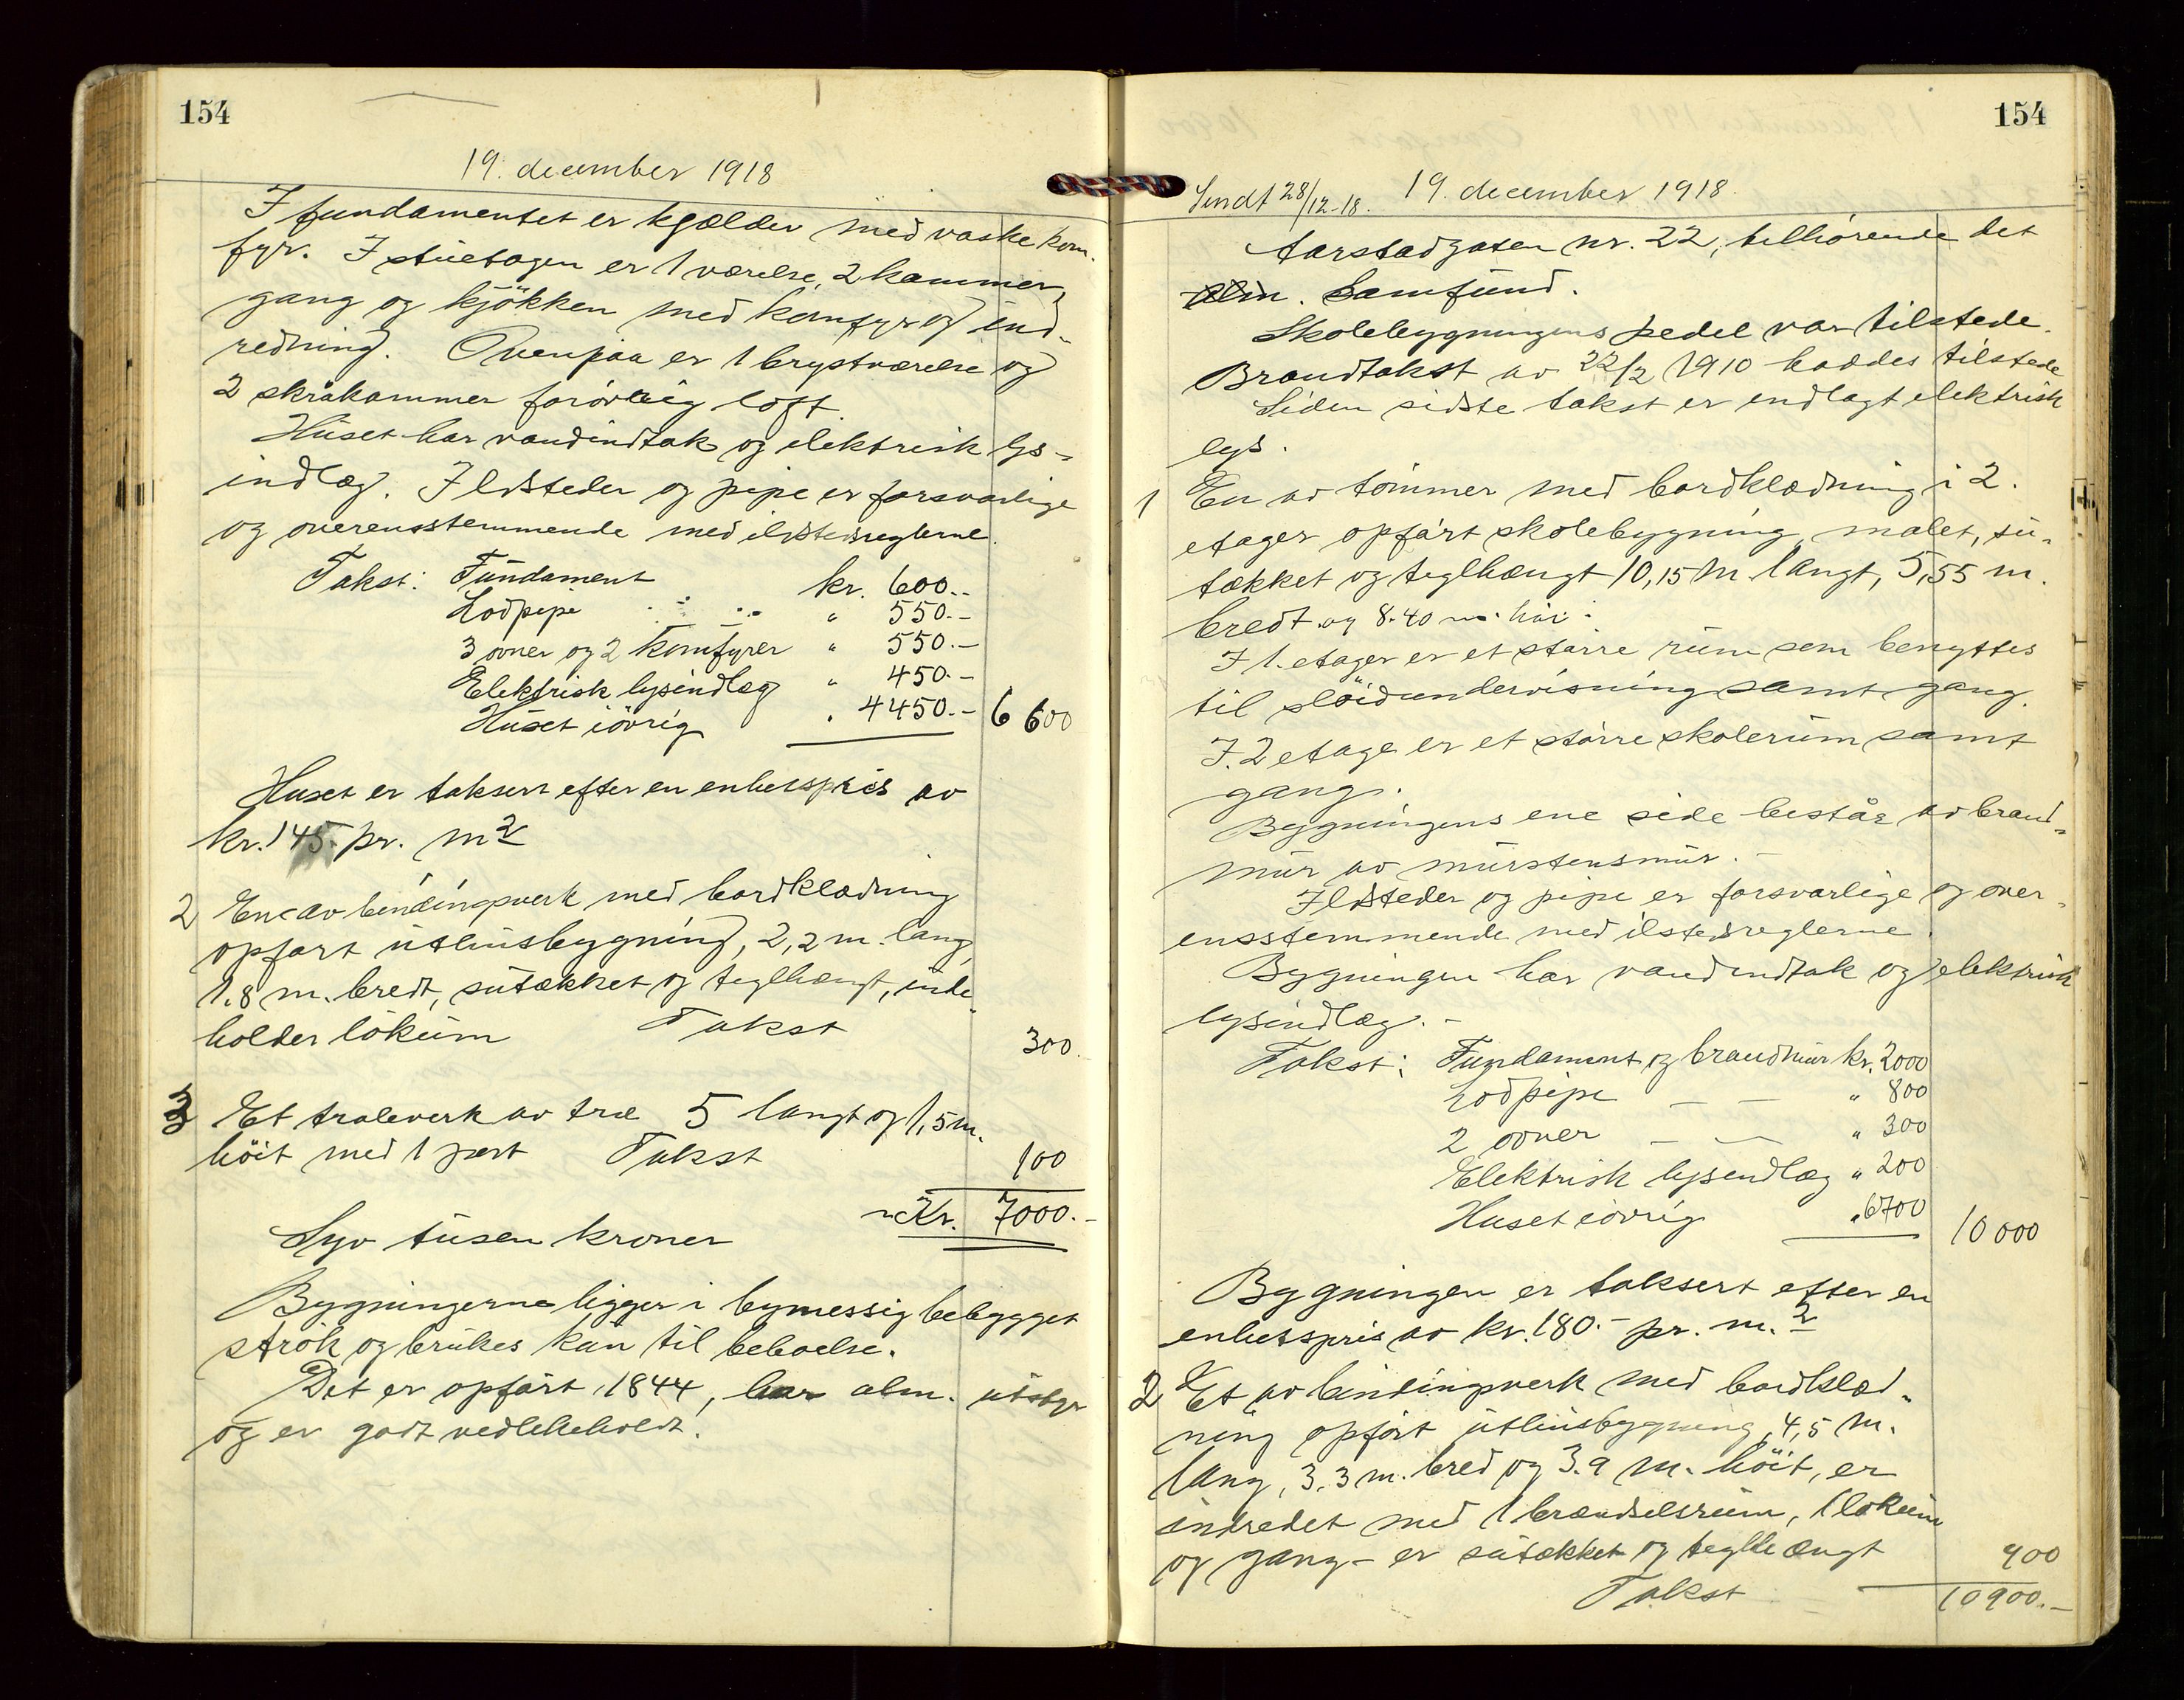 154
19. december 1918
I fundamentet er kjælder med vaskekom-
fyr. I stuetagen er 1 værelse, 2 kammer,
gang og kjökken med komfyr og ind-
redning. Ovenpaa er 1 brystværelse og
2 skråkammer forövrig loft.
Huset har vandindtak og elektrisk lys-
indlæg. Ildsteder og pipe er forsvarlige
og overensstemmende med ildstedsreglerne.
Takst: Fundament kr. 600.-
Lodpipe " 550.-
3 ovner og 2 komfyrer " 550.-
Elektrisk lysindlæg " 450.-
Huset iövrig " 4450.- 6 600
Huset er taksert efter en enhetspris av
kr. 145.- pr. m2
2 En av bindingsverk med bordklædning
opfört uthusbygning, 2,2 m. lang,
1.8 m. bredt, sutækket og teglhængt, inde-
holder lokum Takst 300.
3 Et traleverk av træ 5 langt og 1,5 m.
höit med 1 port Takst 100
Kr. 7000.-
Syv tusen kroner
Bygningerne ligger i bymessig bebygget
strök og brukes kun til beboelse.
Det er opfört i 1844, har alm. utstyr
og er godt vedlikeholdt.
154
Sendt 28/12-18. 19. december 1918.
Aarstadgaten nr. 22, tilhörende det
alm. Samfund.
Skolebygningens pedel var tilstede.
Brandtakst av 22/2 1910 haddes tilstede
Siden sidste takst er indlagt elektrisk
lys.
1 En av tömmer med bordklædning i 2.
etager opfört skolebygning, malet, su-
tækket og teglhængt 10,15 m langt, 5,55 m.
bredt og 8.40 m. höi.
I 1. etager er et större rum som benyttes
til slöidundervisning samt gang.
I. 2 etage er et större skolerum samt
gang.
Bygningens ene side består av brand-
mur av murstensmur.-
Ildsteder og pipe er forsvarlige og over-
ensstemmende med ilstedsreglerne.
Bygningen har vandindtak og elektrisk
lysindlæg.-
Takst: Fundament og brandmur kr. 2000
Lodpipe — — " 800
2 ovner — — " 300
Elektrisk lysindlæg " 200
Huset iövrig " 6700 10 000
Bygningen er taksert efter en
enhetspris av kr. 180.- pr. m.2
2 Et av bindingsverk med bordklæd-
ning opfört uthusbygning, 4,5 m.
lang, 3.3 m. bred og 3.9 m. höit, er
indredet med 1 brændselsrum, 1 lokum
og gang - er sutækket og teglhængt
Takst 900
10900.-